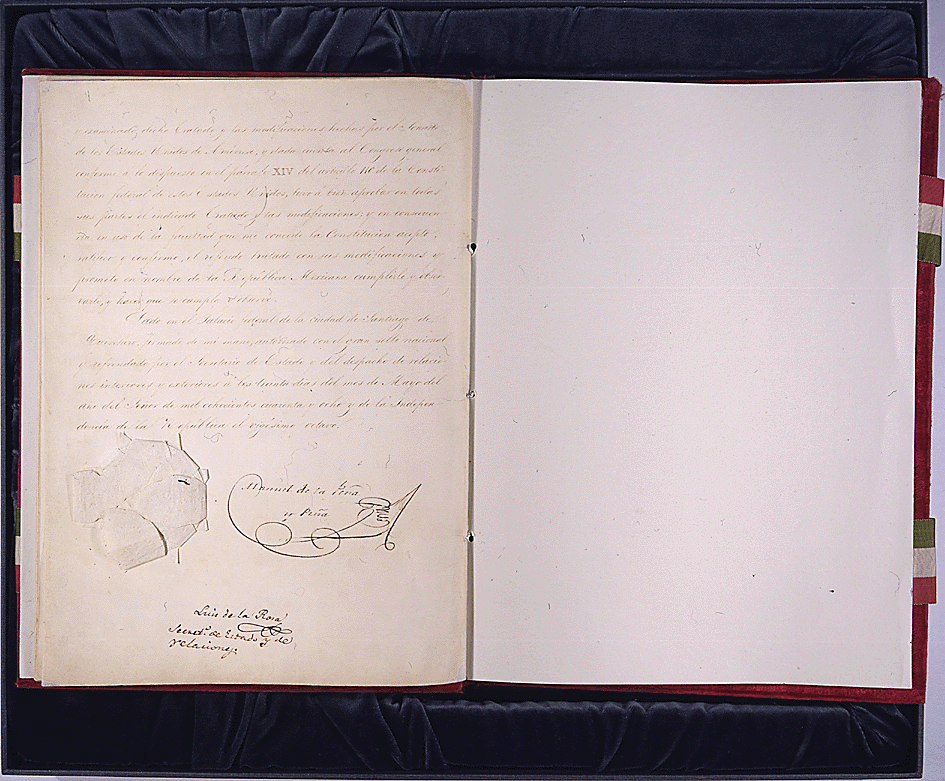 y examinado, dicho Tratado y las modificaciones hechas por el Senado
de los Estados Unidos de America, y dada cuenta al Congreso general
conforme a lo dispuesto en el parrafo XIV del articulo 110 de la Consti-
tucion federal de estos Estados Unidos, tuvo a bien aprobar en todas
sus partes el indicado Tratado y las modificaciones, y en consecuen-
cia en uso de la facultad que me concede la Constitucion acepto,
ratifico y confirmo, el referido tratado con sus modificaciones y
prometo en nombre de la Republica Mexicana cumplirlo y obser-
varlo, y hacer que se cumpla y observe.
Dado en el Palacio federal de la ciudad de Santiago de
Queretaro, firmado de mi mano, autorizado con el gran sello nacional
y refrendado por el Secretario de Estado y del despacho de relacio-
nes interiores y exteriores á los treinta dias del mes de Mayo del
año del Señor de mil ochocientos cuarenta y ocho y de la Indepen-
dencia de la Republica el vigésimo octavo.
Manuel de la Peña
y Peña
Luis de la Rosa
Secret.º de Estado y de
relaciones